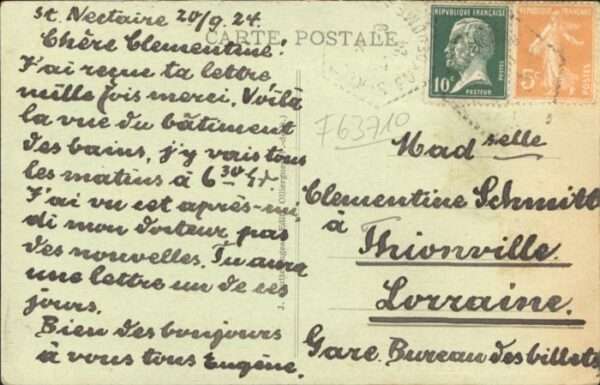 St. Nectaire 20/9.24.
CARTE POSTALE
Chère Clementine!
J'ai reçue ta lettre
mille fois merci. Voilà
la vue du bâtiment
des bains, j'y vais tous
les matins à 6 30
J'ai vu cet après-mi
di mon docteur, pas
des nouvelles. Tu aura
une lettre un de ces
jours.
Bien des bonjours
à vous tous Eugène.
RÉPUBLIQUE FRANÇAISE
10c
POSTES
PASTEUR
RÉPUBLIQUE FRANÇAISE
5c
POSTES
F63710
Madselle
Clementine Schmitt
à
Thionville
Lorraine.
Gare. Bureau des billets